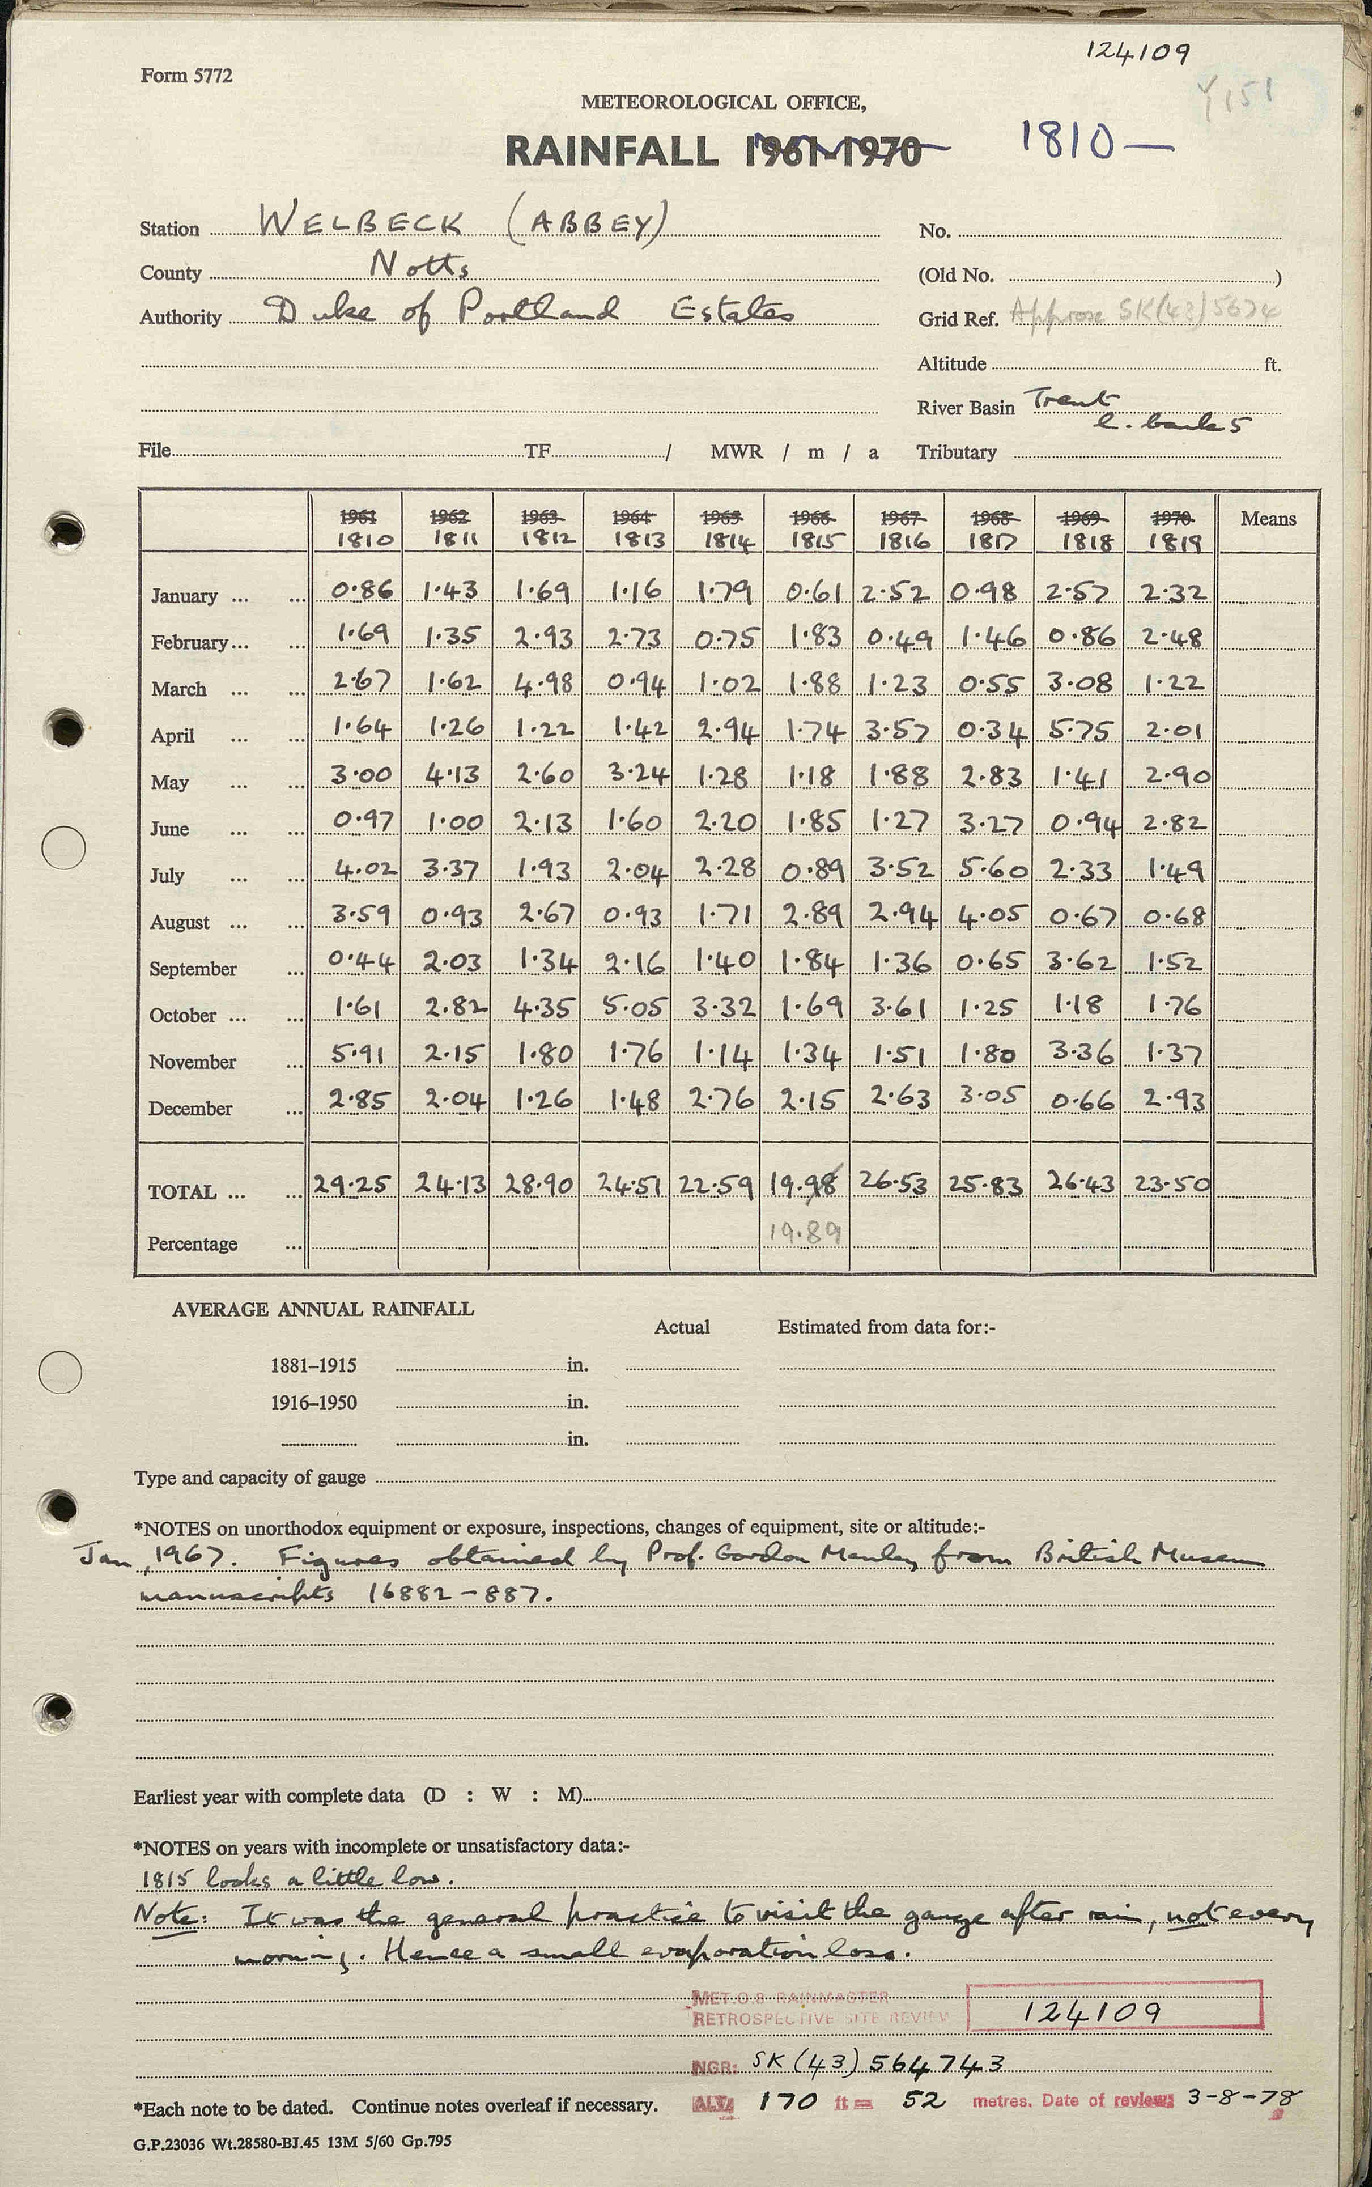 124109
Form 5772
Y151
METEOROLOGICAL OFFICE,
RAINFALL 1961-1970 1810—
Station WELBECK (ABBEY) No.
County Notts (Old No. )
Authority Duke of Portland Estates Grid Ref. Approx SK(43)5674
Altitude ft.
River Basin Trent
L. bank 5
File TF / MWR / m / a Tributary
1961 1962 1963 1964 1965 1966 1967 1968 1969 1970 Means
1810 1811 1812 1813 1814 1815 1816 1817 1818 1819
January ... ... 0.86 1.43 1.69 1.16 1.79 0.61 2.52 0.98 2.57 2.32
February ... ... 1.69 1.35 2.93 2.73 0.75 1.83 0.49 1.46 0.86 2.48
March ... ... 2.67 1.62 4.98 0.94 1.02 1.88 1.23 0.55 3.08 1.22
April ... ... 1.64 1.26 1.22 1.42 2.94 1.74 3.57 0.34 5.75 2.01
May ... ... 3.00 4.13 2.60 3.24 1.28 1.18 1.88 2.83 1.41 2.90
June ... ... 0.97 1.00 2.13 1.60 2.20 1.85 1.27 3.27 0.94 2.82
July ... ... 4.02 3.37 1.93 2.04 2.28 0.89 3.52 5.60 2.33 1.49
August ... ... 3.59 0.93 2.67 0.93 1.71 2.89 2.94 4.05 0.67 0.68
September ... 0.44 2.03 1.34 2.16 1.40 1.84 1.36 0.65 3.62 1.52
October ... ... 1.61 2.82 4.35 5.05 3.32 1.69 3.61 1.25 1.18 1.76
November ... 5.91 2.15 1.80 1.76 1.14 1.34 1.51 1.80 3.36 1.37
December ... 2.85 2.04 1.26 1.48 2.76 2.15 2.63 3.05 0.66 2.93
TOTAL ... ... 29.25 24.13 28.90 24.51 22.59 19.98 26.53 25.83 26.43 23.50
Percentage ... 19.89
AVERAGE ANNUAL RAINFALL
Actual Estimated from data for:-
1881–1915 in.
1916–1950 in.
in.
Type and capacity of gauge
*NOTES on unorthodox equipment or exposure, inspections, changes of equipment, site or altitude:-
Jan, 1967. Figures obtained by Prof. Gordon Manley from British Museum
manuscripts 16882-887.
Earliest year with complete data (D : W : M)
*NOTES on years with incomplete or unsatisfactory data:-
1815 looks a little low.
Note: It was the general practice to visit the gauge after rain, not every
morning. Hence a small evaporation loss.
MET.O.8 RAINMASTER
RETROSPECTIVE SITE REVIEW 124109
NGR: SK(43)564743
*Each note to be dated. Continue notes overleaf if necessary. ALT. 170 ft = 52 metres. Date of review: 3-8-78
G.P.23036 Wt.28580-BJ.45 13M 5/60 Gp.795